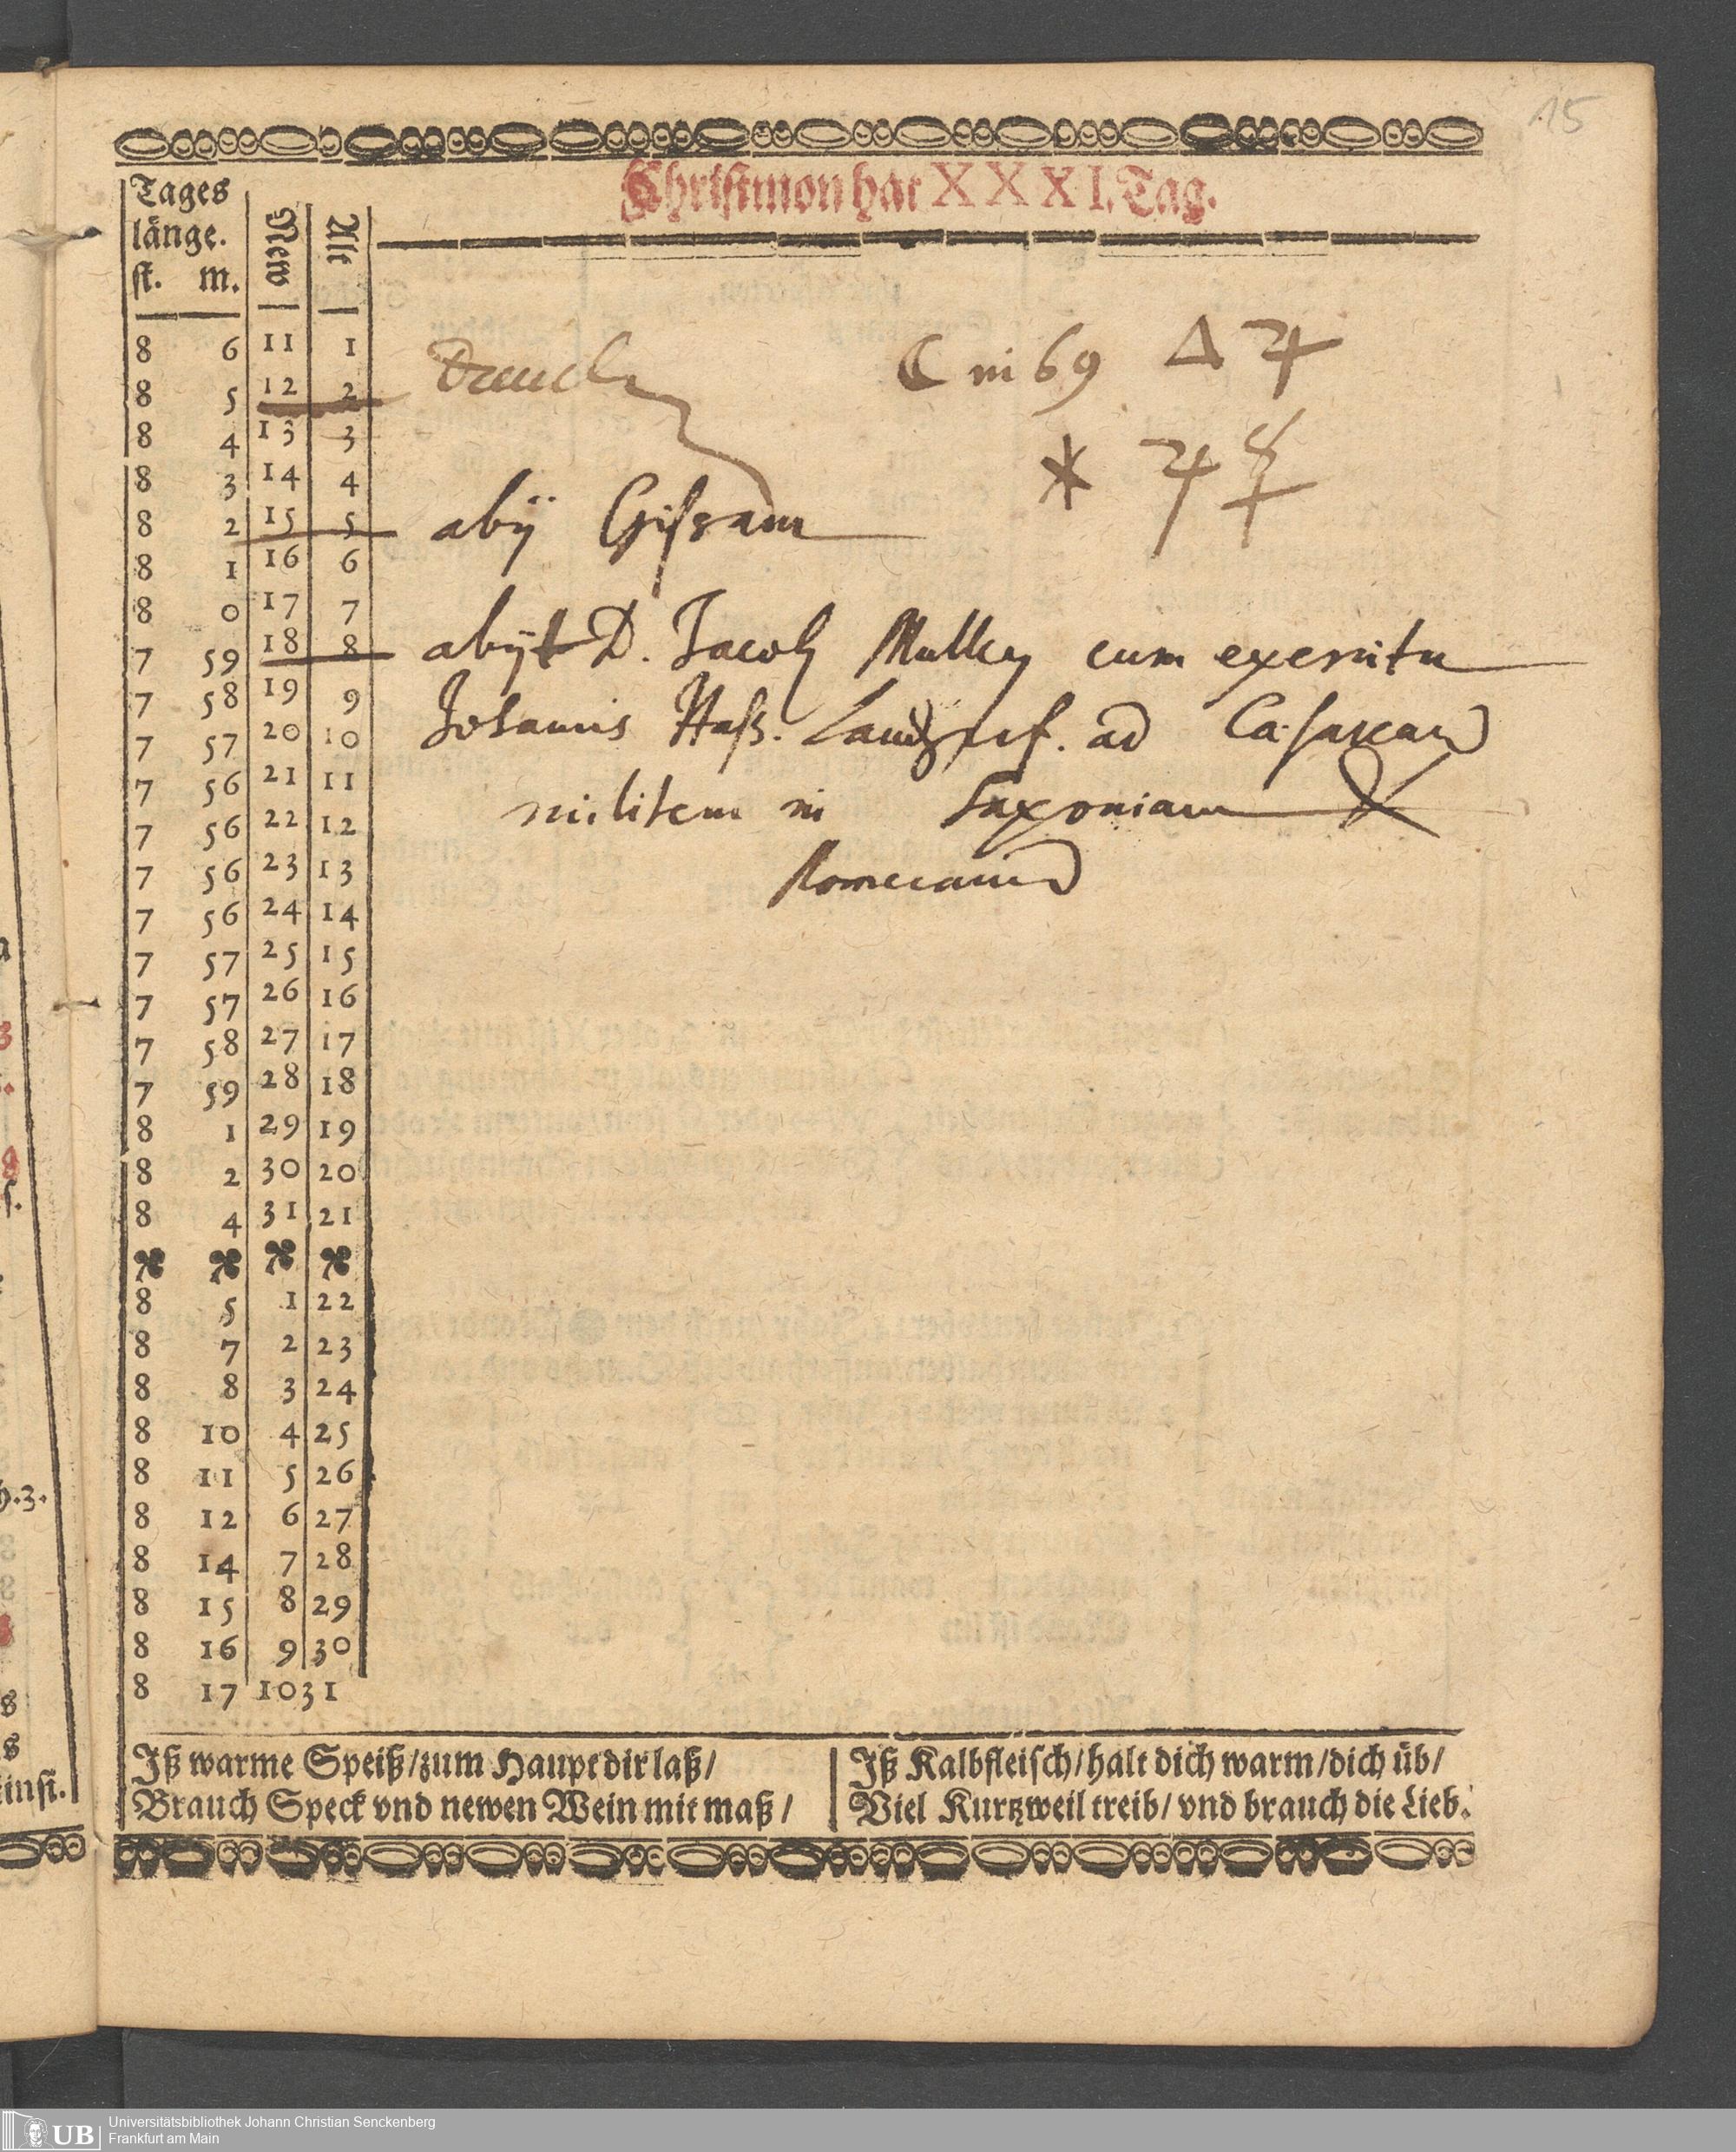 15
Christmon hat XXXI. Tag.
Tages
länge.
st. m.
New
Alt
8 6 11 1
8 5 12 2
8 4 13 3
8 3 14 4
8 2 15 5
8 1 16 6
8 0 17 7
7 59 18 8
7 58 19 9
7 57 20 10
7 56 21 11
7 56 22 12
7 56 23 13
7 56 24 14
7 57 25 15
7 57 26 16
7 58 27 17
7 59 28 18
8 1 29 19
8 2 30 20
8 4 31 21
8 5 1 22
8 7 2 23
8 8 3 24
8 10 4 25
8 11 5 26
8 12 6 27
8 14 7 28
8 15 8 29
8 16 9 30
8 17 10 31
☾ in 69 △ ♃
⚹ ♃ ☿
abij Gissam
abijt D. Jacob Muller cum exercitu
Johannis Hass. Landgraf. ad Caesarean
militem in Saxoniam &
Pomeraniã
Iß warme Speiß/zum Haupt dir laß/
Brauch Speck vnd newen Wein mit maß/
Iß Kalbfleisch/halt dich warm/dich üb/
Viel Kurtzweil treib/vnd brauch die Lieb.
UB
Universitätsbibliothek Johann Christian Senckenberg
Frankfurt am Main